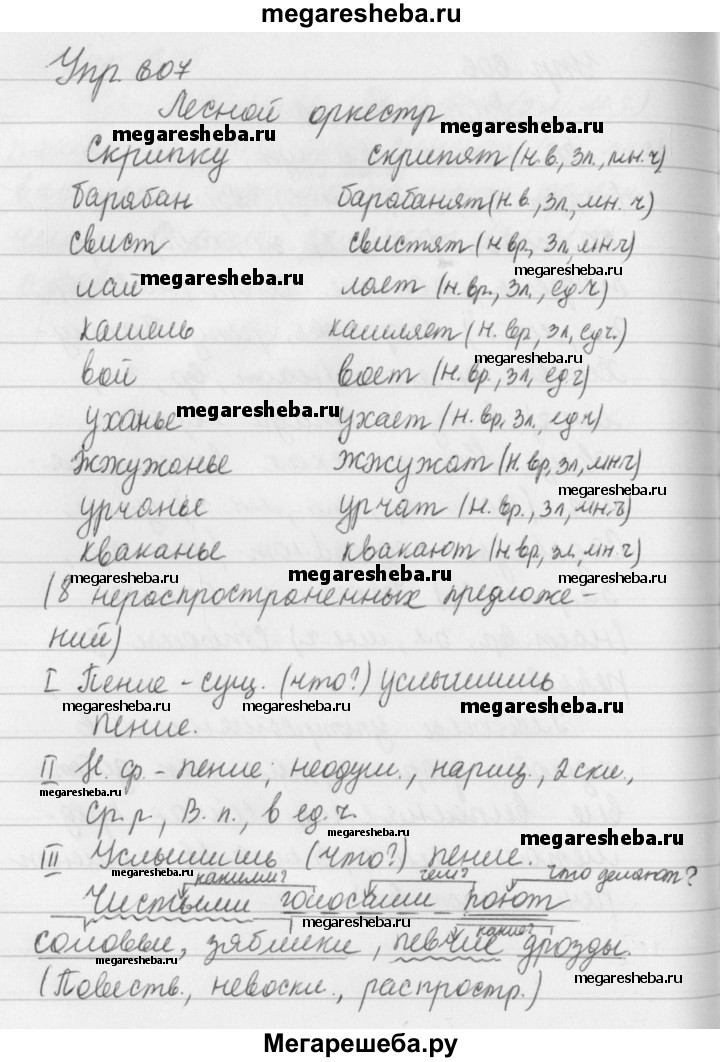 megaresheba.ru
Упр. 607
Лесной оркестр
megaresheba.ru megaresheba.ru
Скрипку скрипят (н.в., 3л., мн.ч)
megaresheba.ru
барабан барабанят (н.в., 3л, мн. ч)
свист свистят (н.вр, 3л, мн.ч)
megaresheba.ru megaresheba.ru
лай лает (н.вр., 3л., ед.ч)
кашель кашляет (н.вр, 3л, ед.ч.)
megaresheba.ru
вой воет (н.вр., 3л, ед.ч)
megaresheba.ru
уханье ухает (н.вр, 3л., ед.ч)
megaresheba.ru
Жжужанье жжужат (н.вр, 3л, мн.ч)
megaresheba.ru
урчанье урчат (н.вр., 3л, мн.ч)
кваканье квакают (н.вр, 3л, мн.ч)
megaresheba.ru megaresheba.ru megaresheba.ru
(8 нераспространенных предложе-
ний)
I Пение - сущ. (что?) услышишь
megaresheba.ru megaresheba.ru megaresheba.ru
пение.
II Н.ф. - пение, неодуш., нариц., 2 скл.,
megaresheba.ru megaresheba.ru
Ср.р., В.п., в ед.ч.
megaresheba.ru megaresheba.ru
III Услышишь (что?) пение.
megaresheba.ru
какими? чем? что делают?
Чистыми голосами поют
megaresheba.ru
какие?
соловьи, зяблики, певчие дрозды.
megaresheba.ru megaresheba.ru
(Повеств., невоскл., распростр.)
Мегарешеба.ру